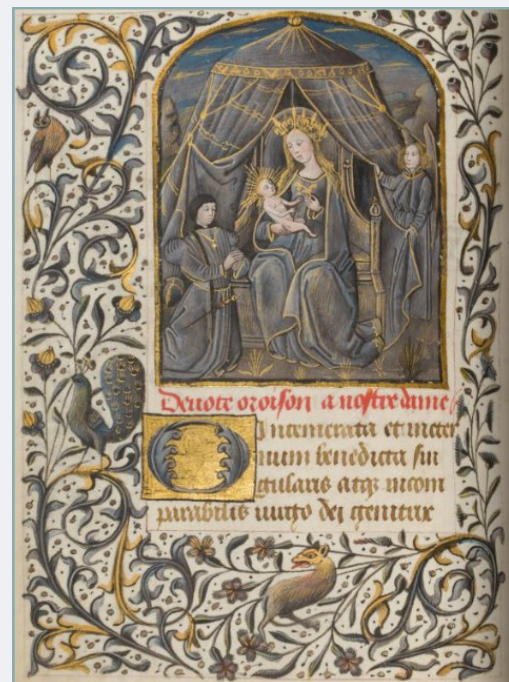 Devote oroison a nostre dame
O Intemerata et in eter
num benedicta sin
gularis atq; incom
parabilis uirgo dei genitrix